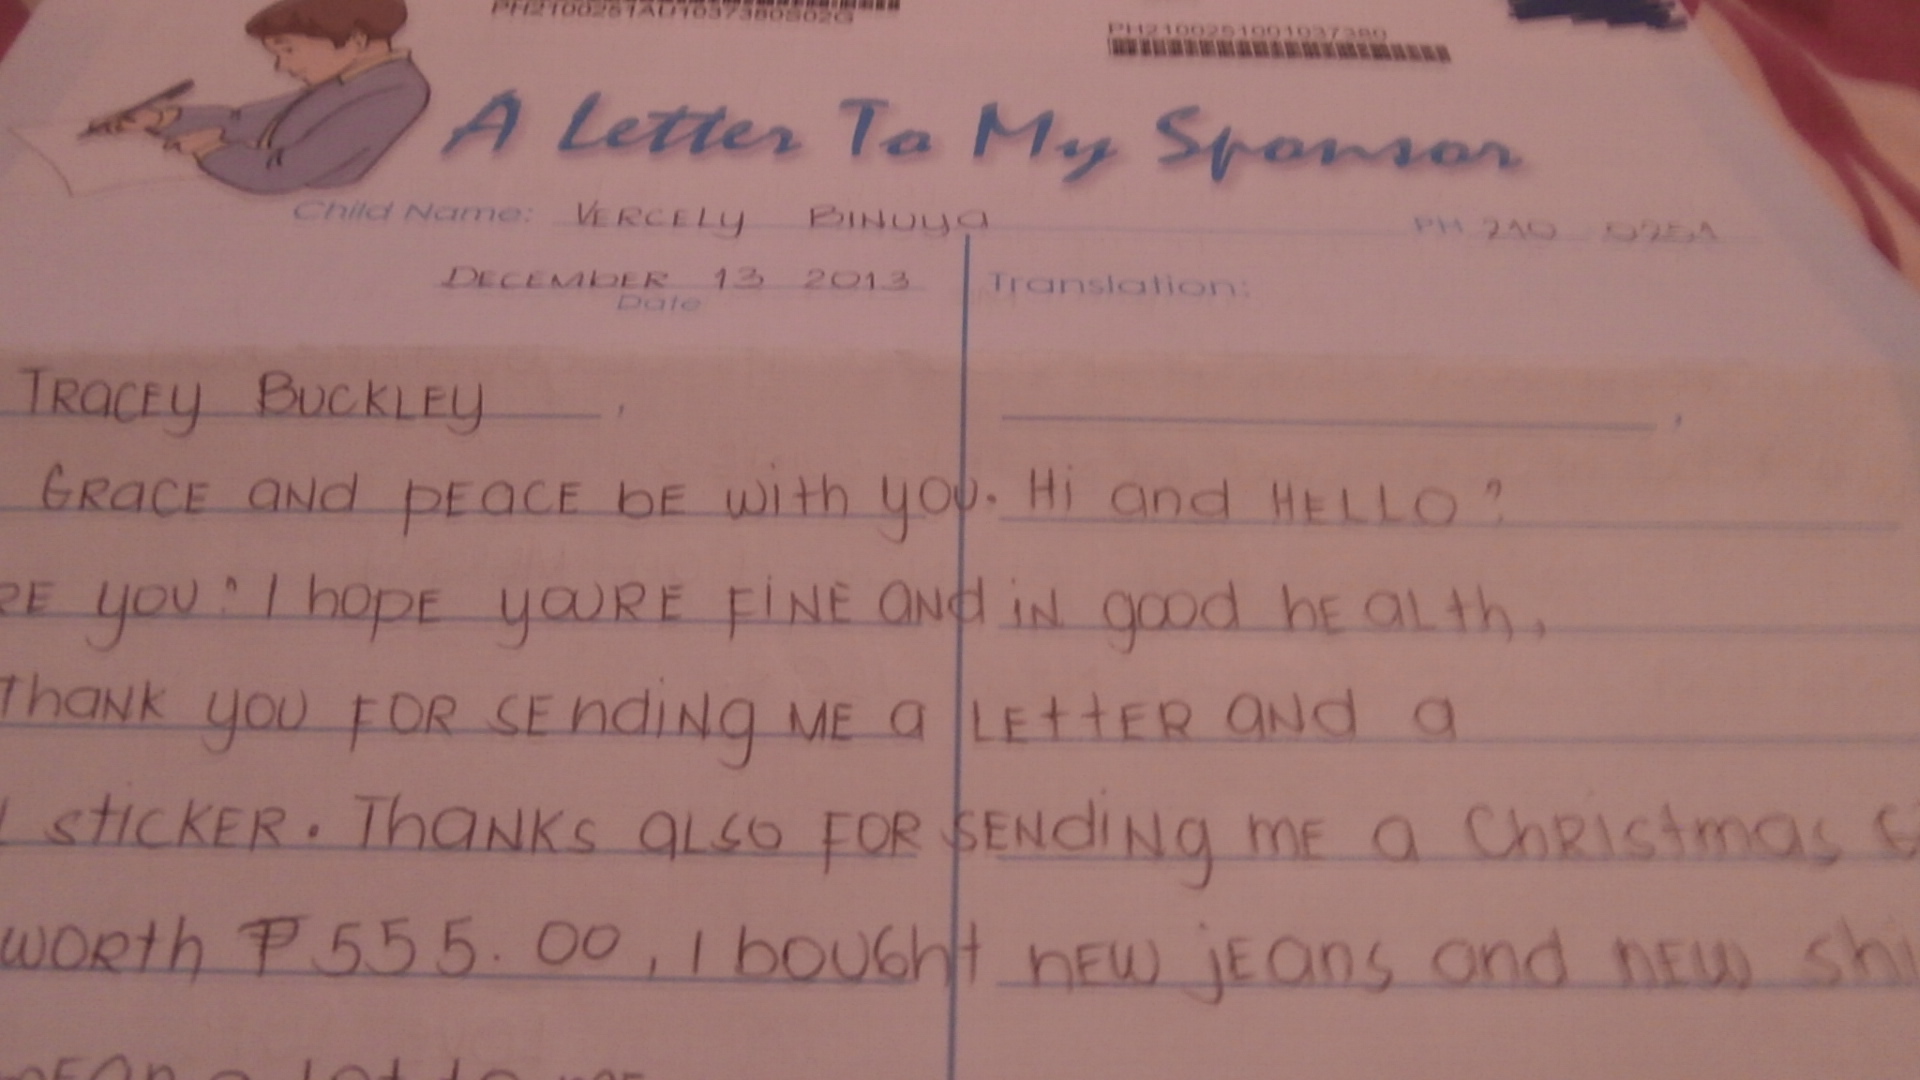 PH2100251AU1037380S02G
PH2100251001037380
A Letter To My Sponsor
Child Name: VERCELY BINUYA PH 210 0251
DECEMBER 13 2013
Date
Translation:
TRACEY BUCKLEY ,
,
GRACE AND PEACE BE with you. Hi and HELLO?
RE you? I hope youRE FINE AND iN good hEALth,
Thank you FOR SENding ME a LEttER AND a
sticKER. ThaNKs ALSO FOR SENdiNg mE a ChRistmas
WORth ₱555.00, I bought NEW jEans and NEW
MEAN a lot to ME